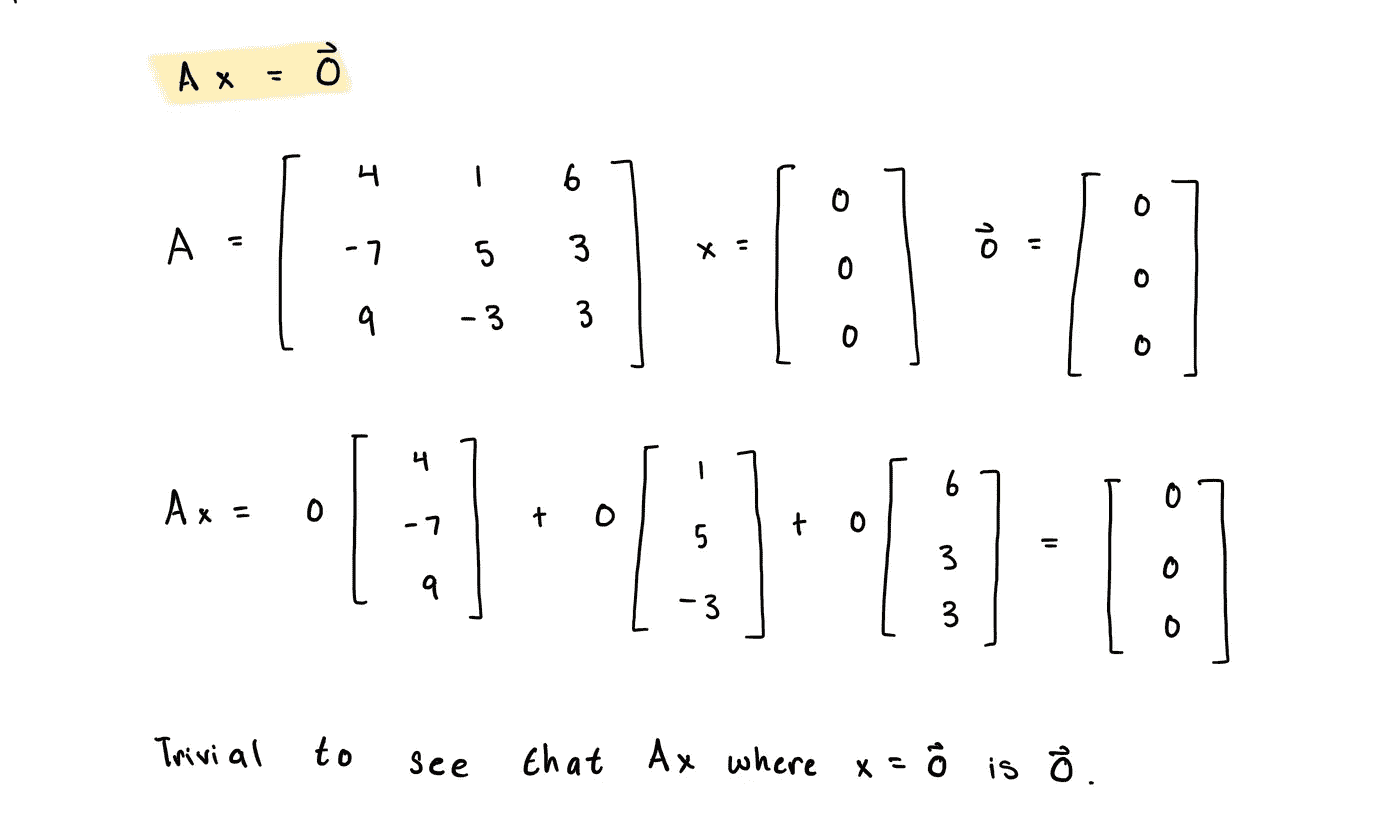 A x = 0⃗
A = [ 4 1 6 ; -7 5 3 ; 9 -3 3 ] x = [ 0 ; 0 ; 0 ] 0⃗ = [ 0 ; 0 ; 0 ]
A x = 0 [ 4 ; -7 ; 9 ] + 0 [ 1 ; 5 ; -3 ] + 0 [ 6 ; 3 ; 3 ] = [ 0 ; 0 ; 0 ]
Trivial to see that Ax where x = 0⃗ is 0⃗.